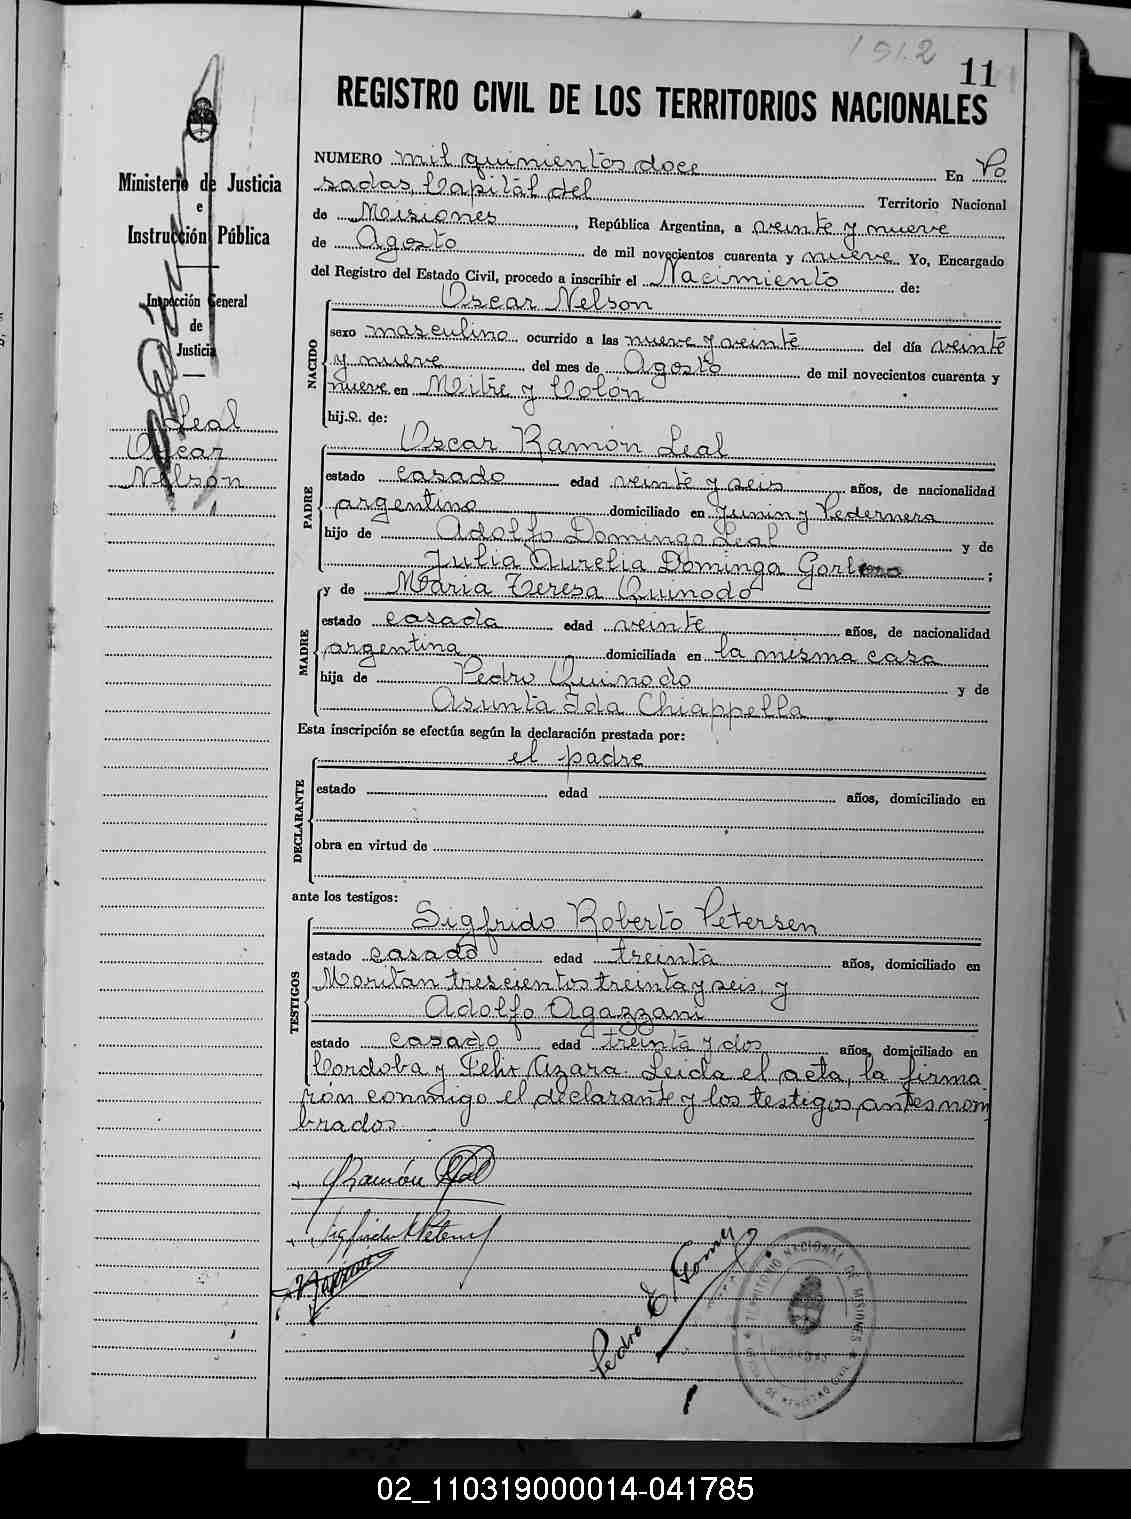 1512
11
REGISTRO CIVIL DE LOS TERRITORIOS NACIONALES
Ministerio de Justicia
e
Instrucción Pública
Inspección General
de
Justicia
Leal
Oscar
Nelson
NUMERO mil quinientos doce En Po
sadas, Capital del Territorio Nacional
de Misiones, República Argentina, a veinte y nueve
de Agosto de mil novecientos cuarenta y nueve. Yo, Encargado
del Registro del Estado Civil, procedo a inscribir el Nacimiento de:
NACIDO
Oscar Nelson
sexo masculino ocurrido a las nueve y veinte del día veinte
y nueve del mes de Agosto de mil novecientos cuarenta y
nueve en Mitre y Colón
hijo de:
PADRE
Oscar Ramón Leal
estado casado edad veinte y seis años, de nacionalidad
argentino domiciliado en Junin y Pedernera
hijo de Adolfo Domingo Leal y de
Julia Aurelia Dominga ;
MADRE
y de María Teresa Quinodo
estado casada edad veinte años, de nacionalidad
argentina domiciliada en la misma casa
hija de Pedro Quinodo y de
Asunta Ida Chiappella
Esta inscripción se efectúa según la declaración prestada por:
DECLARANTE
el padre
estado edad años, domiciliado en
obra en virtud de
ante los testigos:
TESTIGOS
Sigfrido Roberto Petersen
estado casado edad treinta años, domiciliado en
Moritan trescientos treinta y seis, y
Adolfo Agazzani
estado casado edad treinta y dos años, domiciliado en
Cordoba y Felix Azara. Leida el acta, la firma
rón conmigo el declarante y los testigos antes nom
brados.
Ramón Leal
Pedro E. Gomez
TERRITORIO NACIONAL DE MISIONES
02_110319000014-041785